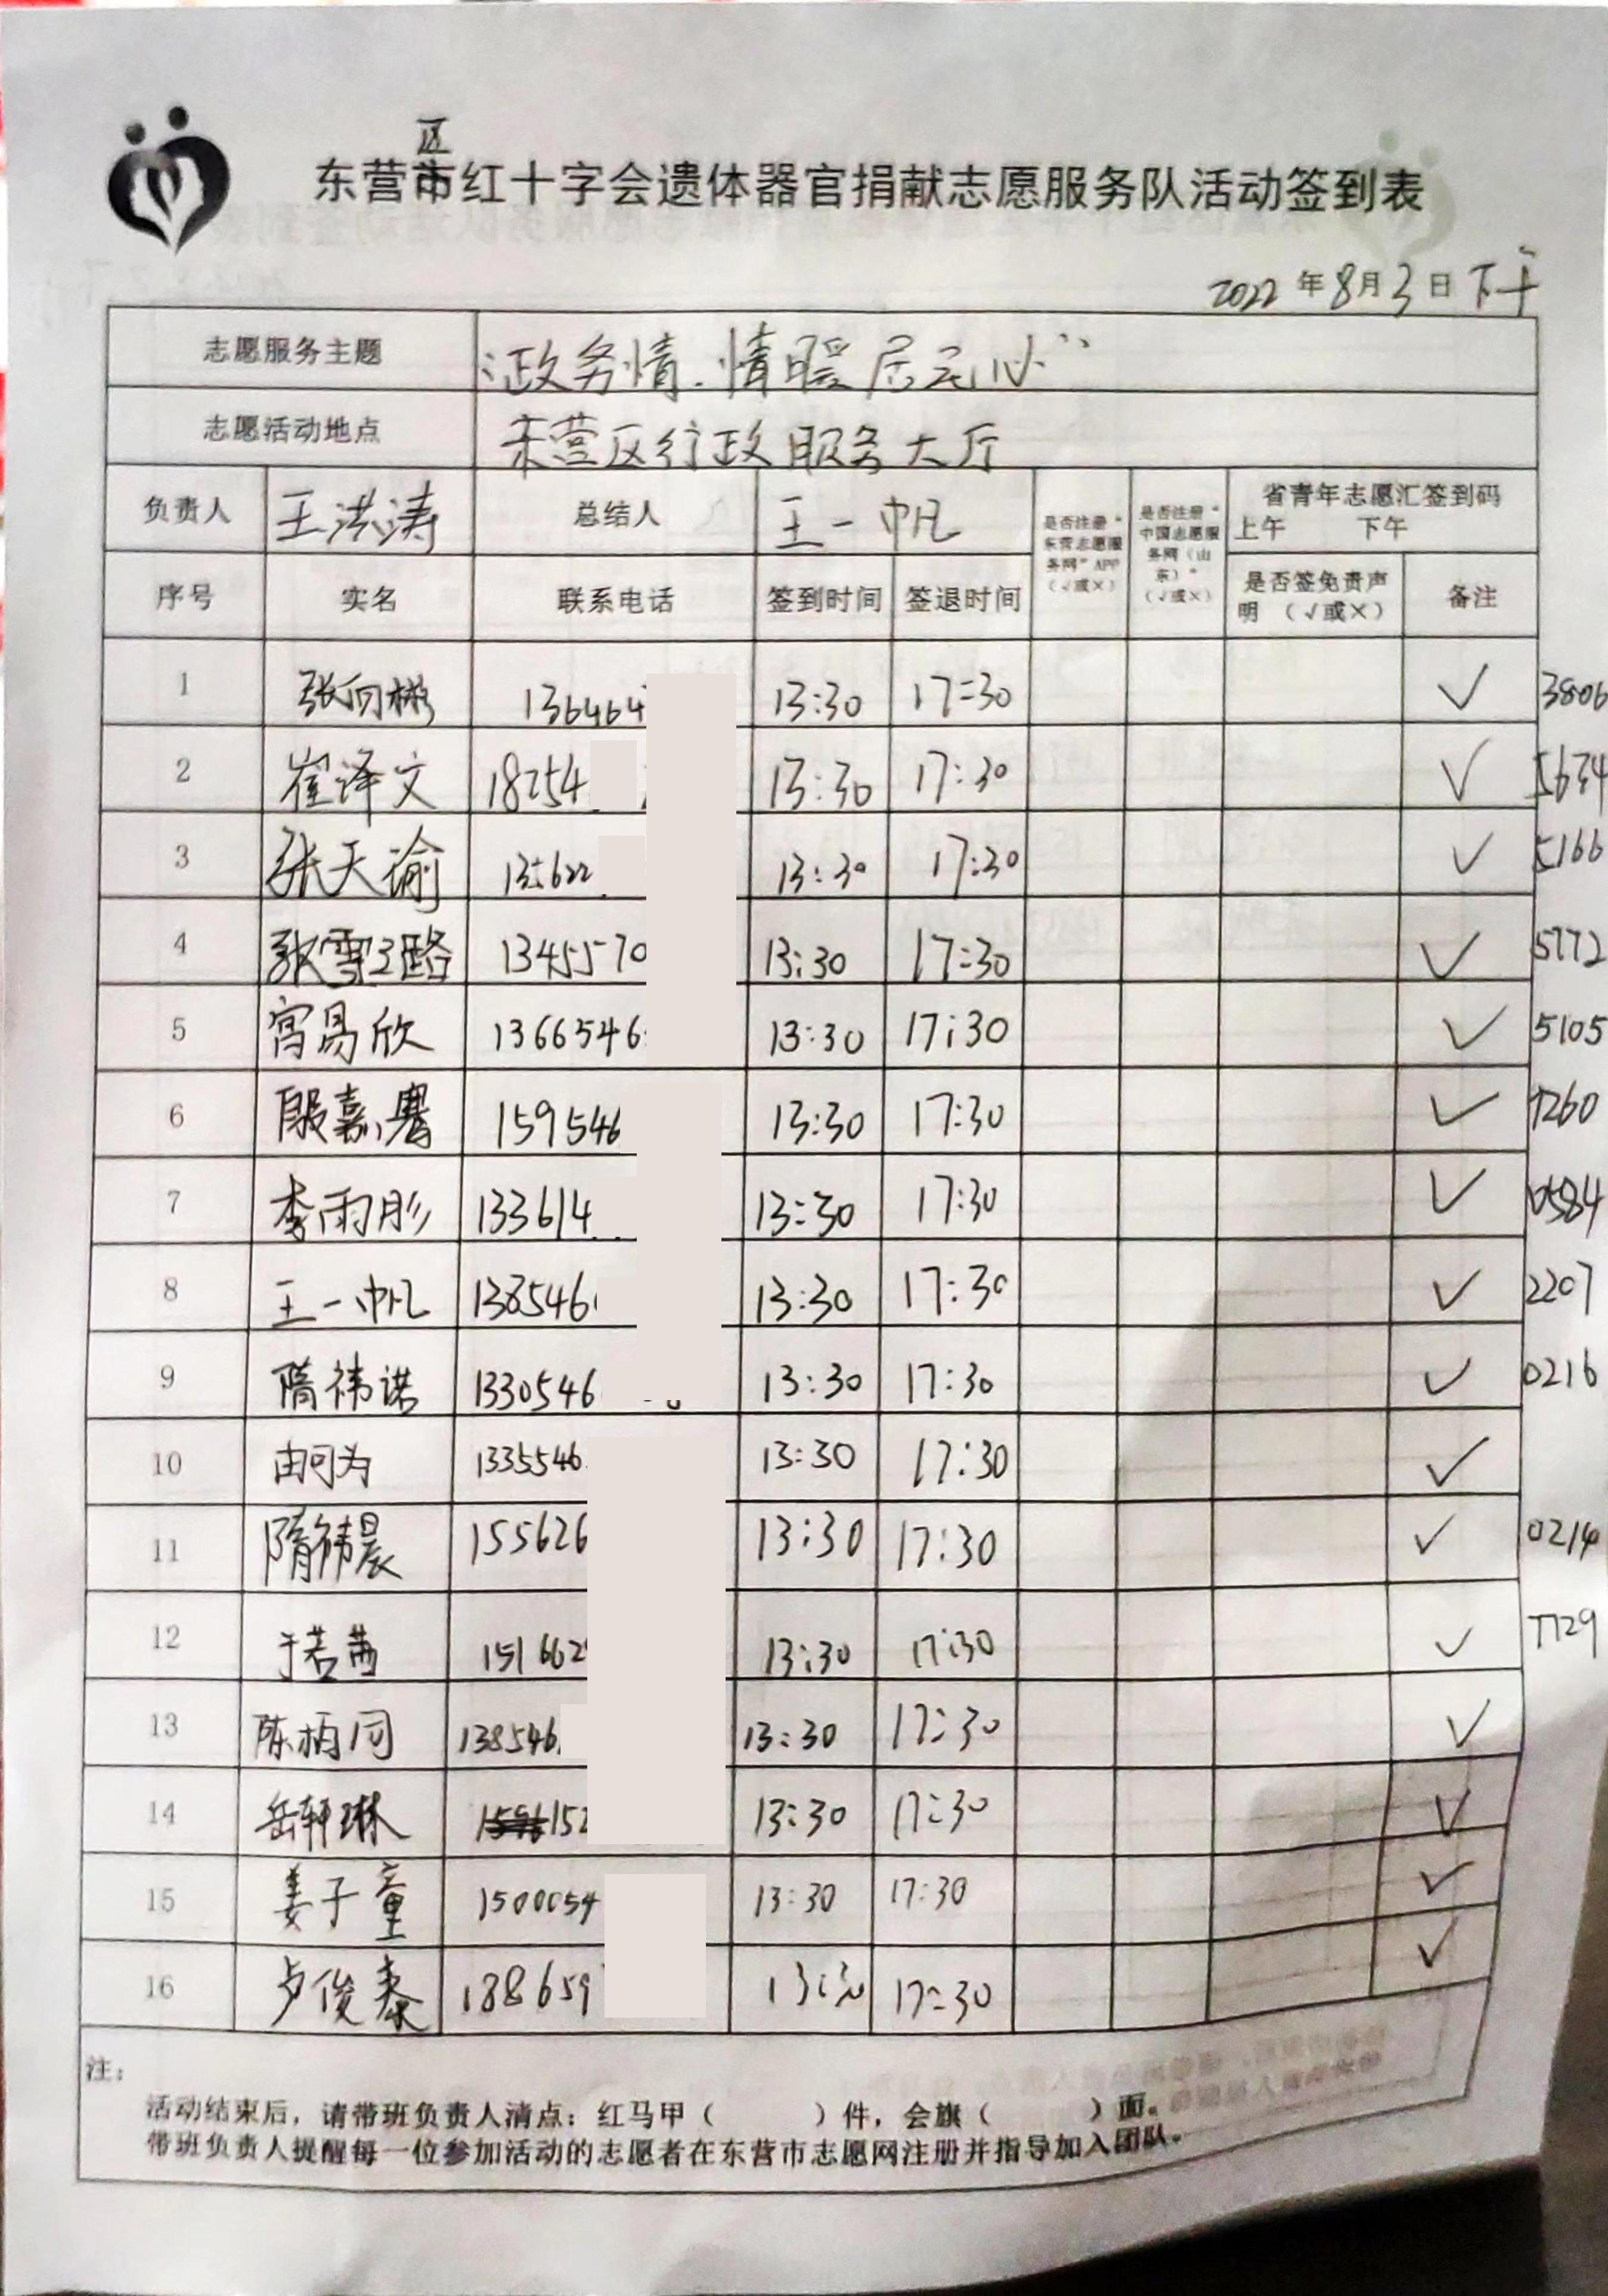 区
东营市红十字会遗体器官捐献志愿服务队活动签到表
2022 年 8 月 3 日 下午
志愿服务主题 “政务情.情暖居民心”
志愿活动地点 东营区行政服务大厅
负责人 王洪涛 总结人 王一帆 是否注册“东营志愿服务网”APP（√或×） 是否注册“中国志愿服务网（山东）”（√或×） 省青年志愿汇签到码 上午 下午
序号 实名 联系电话 签到时间 签退时间 是否签免责声明（√或×） 备注
1 张向彬 136464 13:30 17:30 √ 3806
2 崔泽文 18254 13:30 17:30 √ 5634
3 张天瑜 135622 13:30 17:30 √ 5166
4 张雪璐 13455570 13:30 17:30 √ 5772
5 宫昜欣 13665546 13:30 17:30 √ 5105
6 殷嘉 159546 13:30 17:30 √ 7260
7 李雨彤 133614 13:30 17:30 √ 0584
8 王一帆 1385461 13:30 17:30 √ 2207
9 隋祎诺 1330546 13:30 17:30 √ 0216
10 由可为 1335546 13:30 17:30 √
11 隋祎晨 155626 13:30 17:30 √ 0214
12 于若茜 151662 13:30 17:30 √ 7729
13 陈柄同 138546 13:30 17:30 √
14 岳轩琳 152 13:30 17:30 √
15 姜子童 1500054 13:30 17:30 √
16 卢俊泰 188659 13:30 17:30 √
注：
活动结束后，请带班负责人清点：红马甲（ ）件，会旗（ ）面。
带班负责人提醒每一位参加活动的志愿者在东营市志愿网注册并指导加入团队。